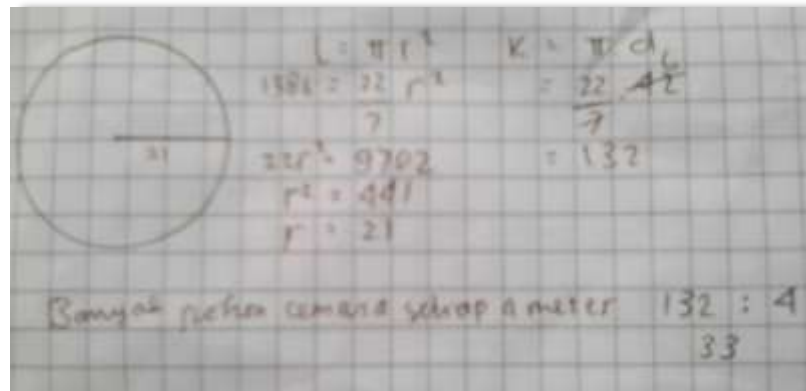 L = π r²
1386 = 22/7 r²
22r² = 9702
r² = 441
r = 21
K = π d
= 22/7 . 42 6
= 132
21
Banyak pohon cemara setiap 4 meter 132 : 4
33